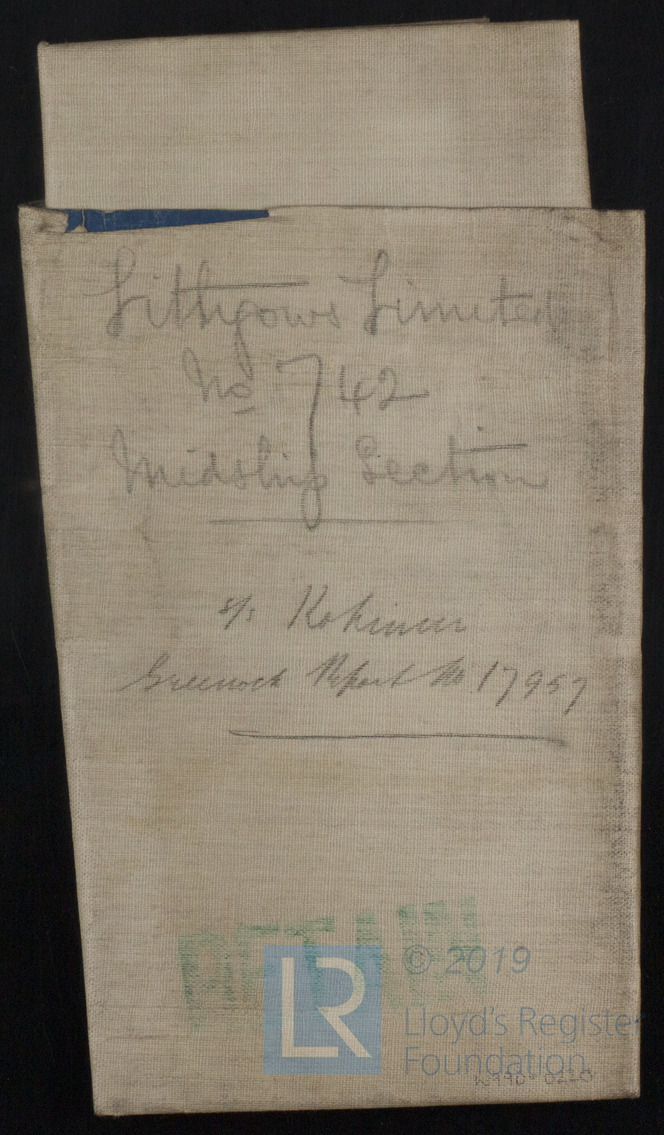 Lithgows Limited
No 742
Midship Section
s/s Kohinur
Greenock Report No 17957
RETAIN
LR
© 2019
Lloyd's Register
Foundation
W990-0220